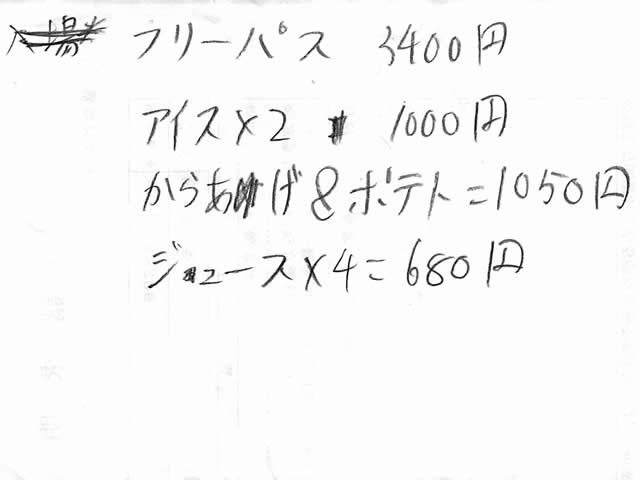 フリーパス 3400円
アイス×2 1000円
からあげ&ポテト=1050円
ジュース×4=680円